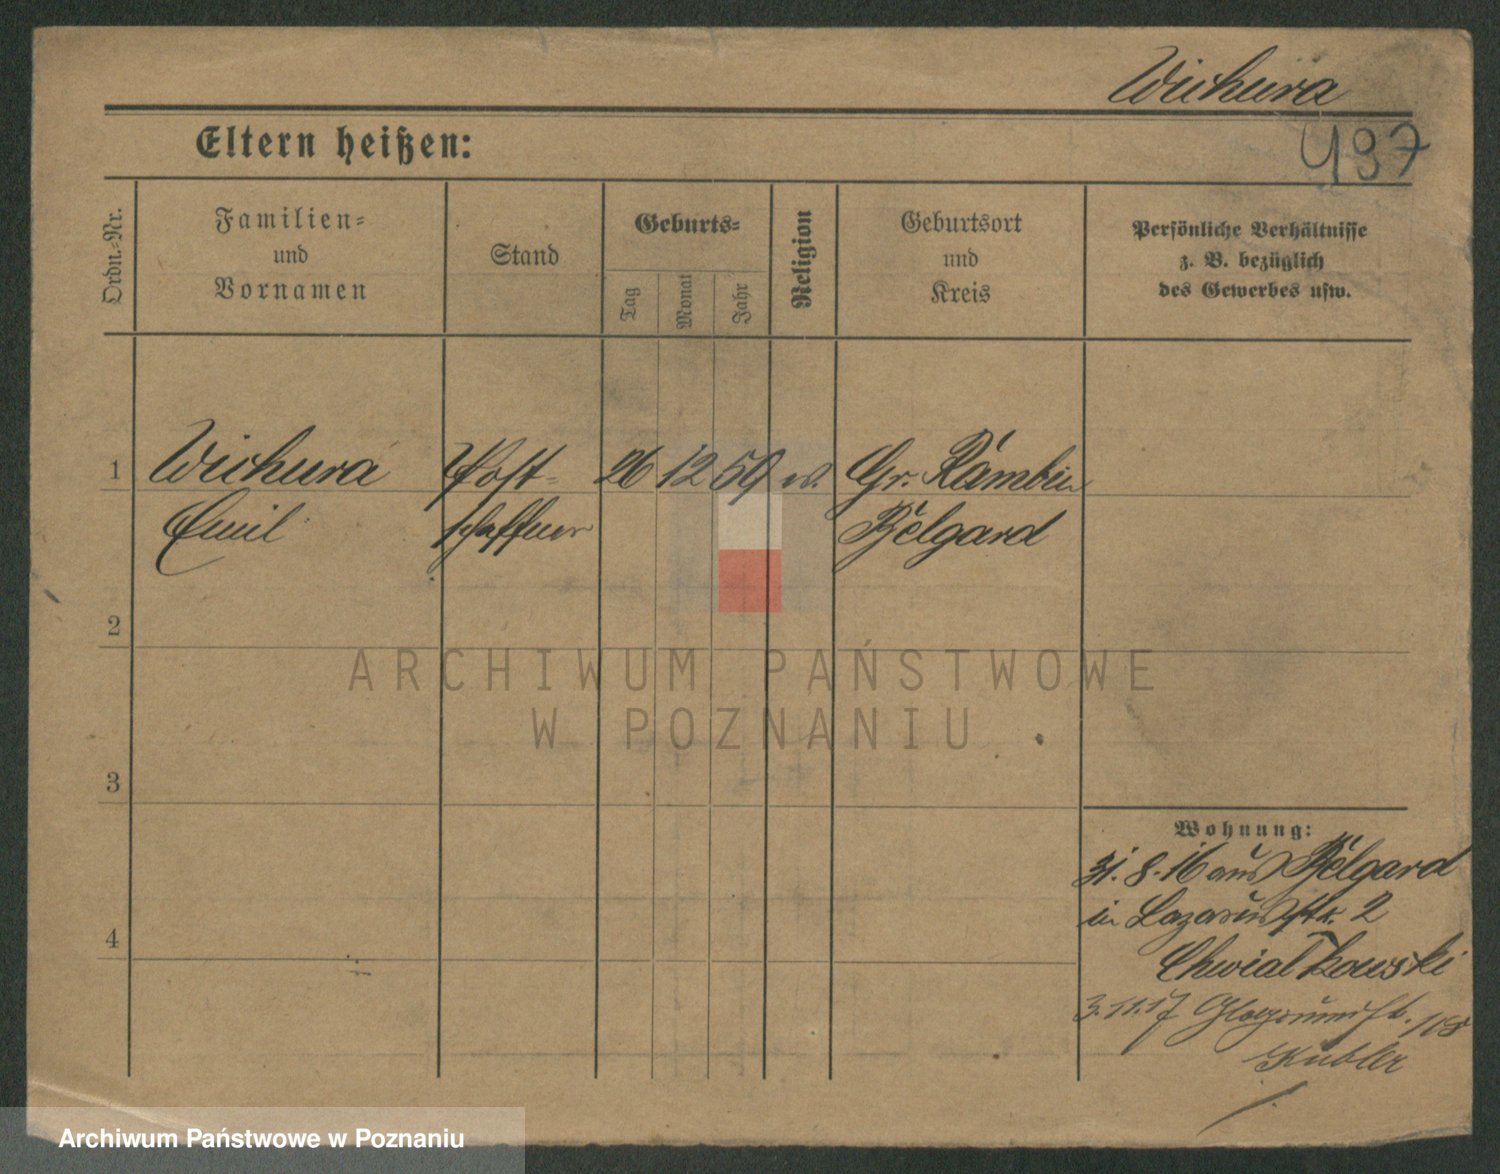 Wichura
Eltern heißen:
497
Ordn.-Nr.
Familien-
und
Vornamen
Stand
Geburts-
Tag
Monat
Jahr
Religion
Geburtsort
und
Kreis
Persönliche Verhältnisse
z. B. bezüglich
des Gewerbes usw.
1
Wichura Post- 26 12 59 Gr. Rambin
Emil schaffner Belgard
2
ARCHIWUM PAŃSTWOWE
W POZNANIU
3
Wohnung:
31. 8. 16 aus Belgard
in Lazarusstr. 2
4
Chwialkowski
3.11.17
Kubler
Archiwum Państwowe w Poznaniu